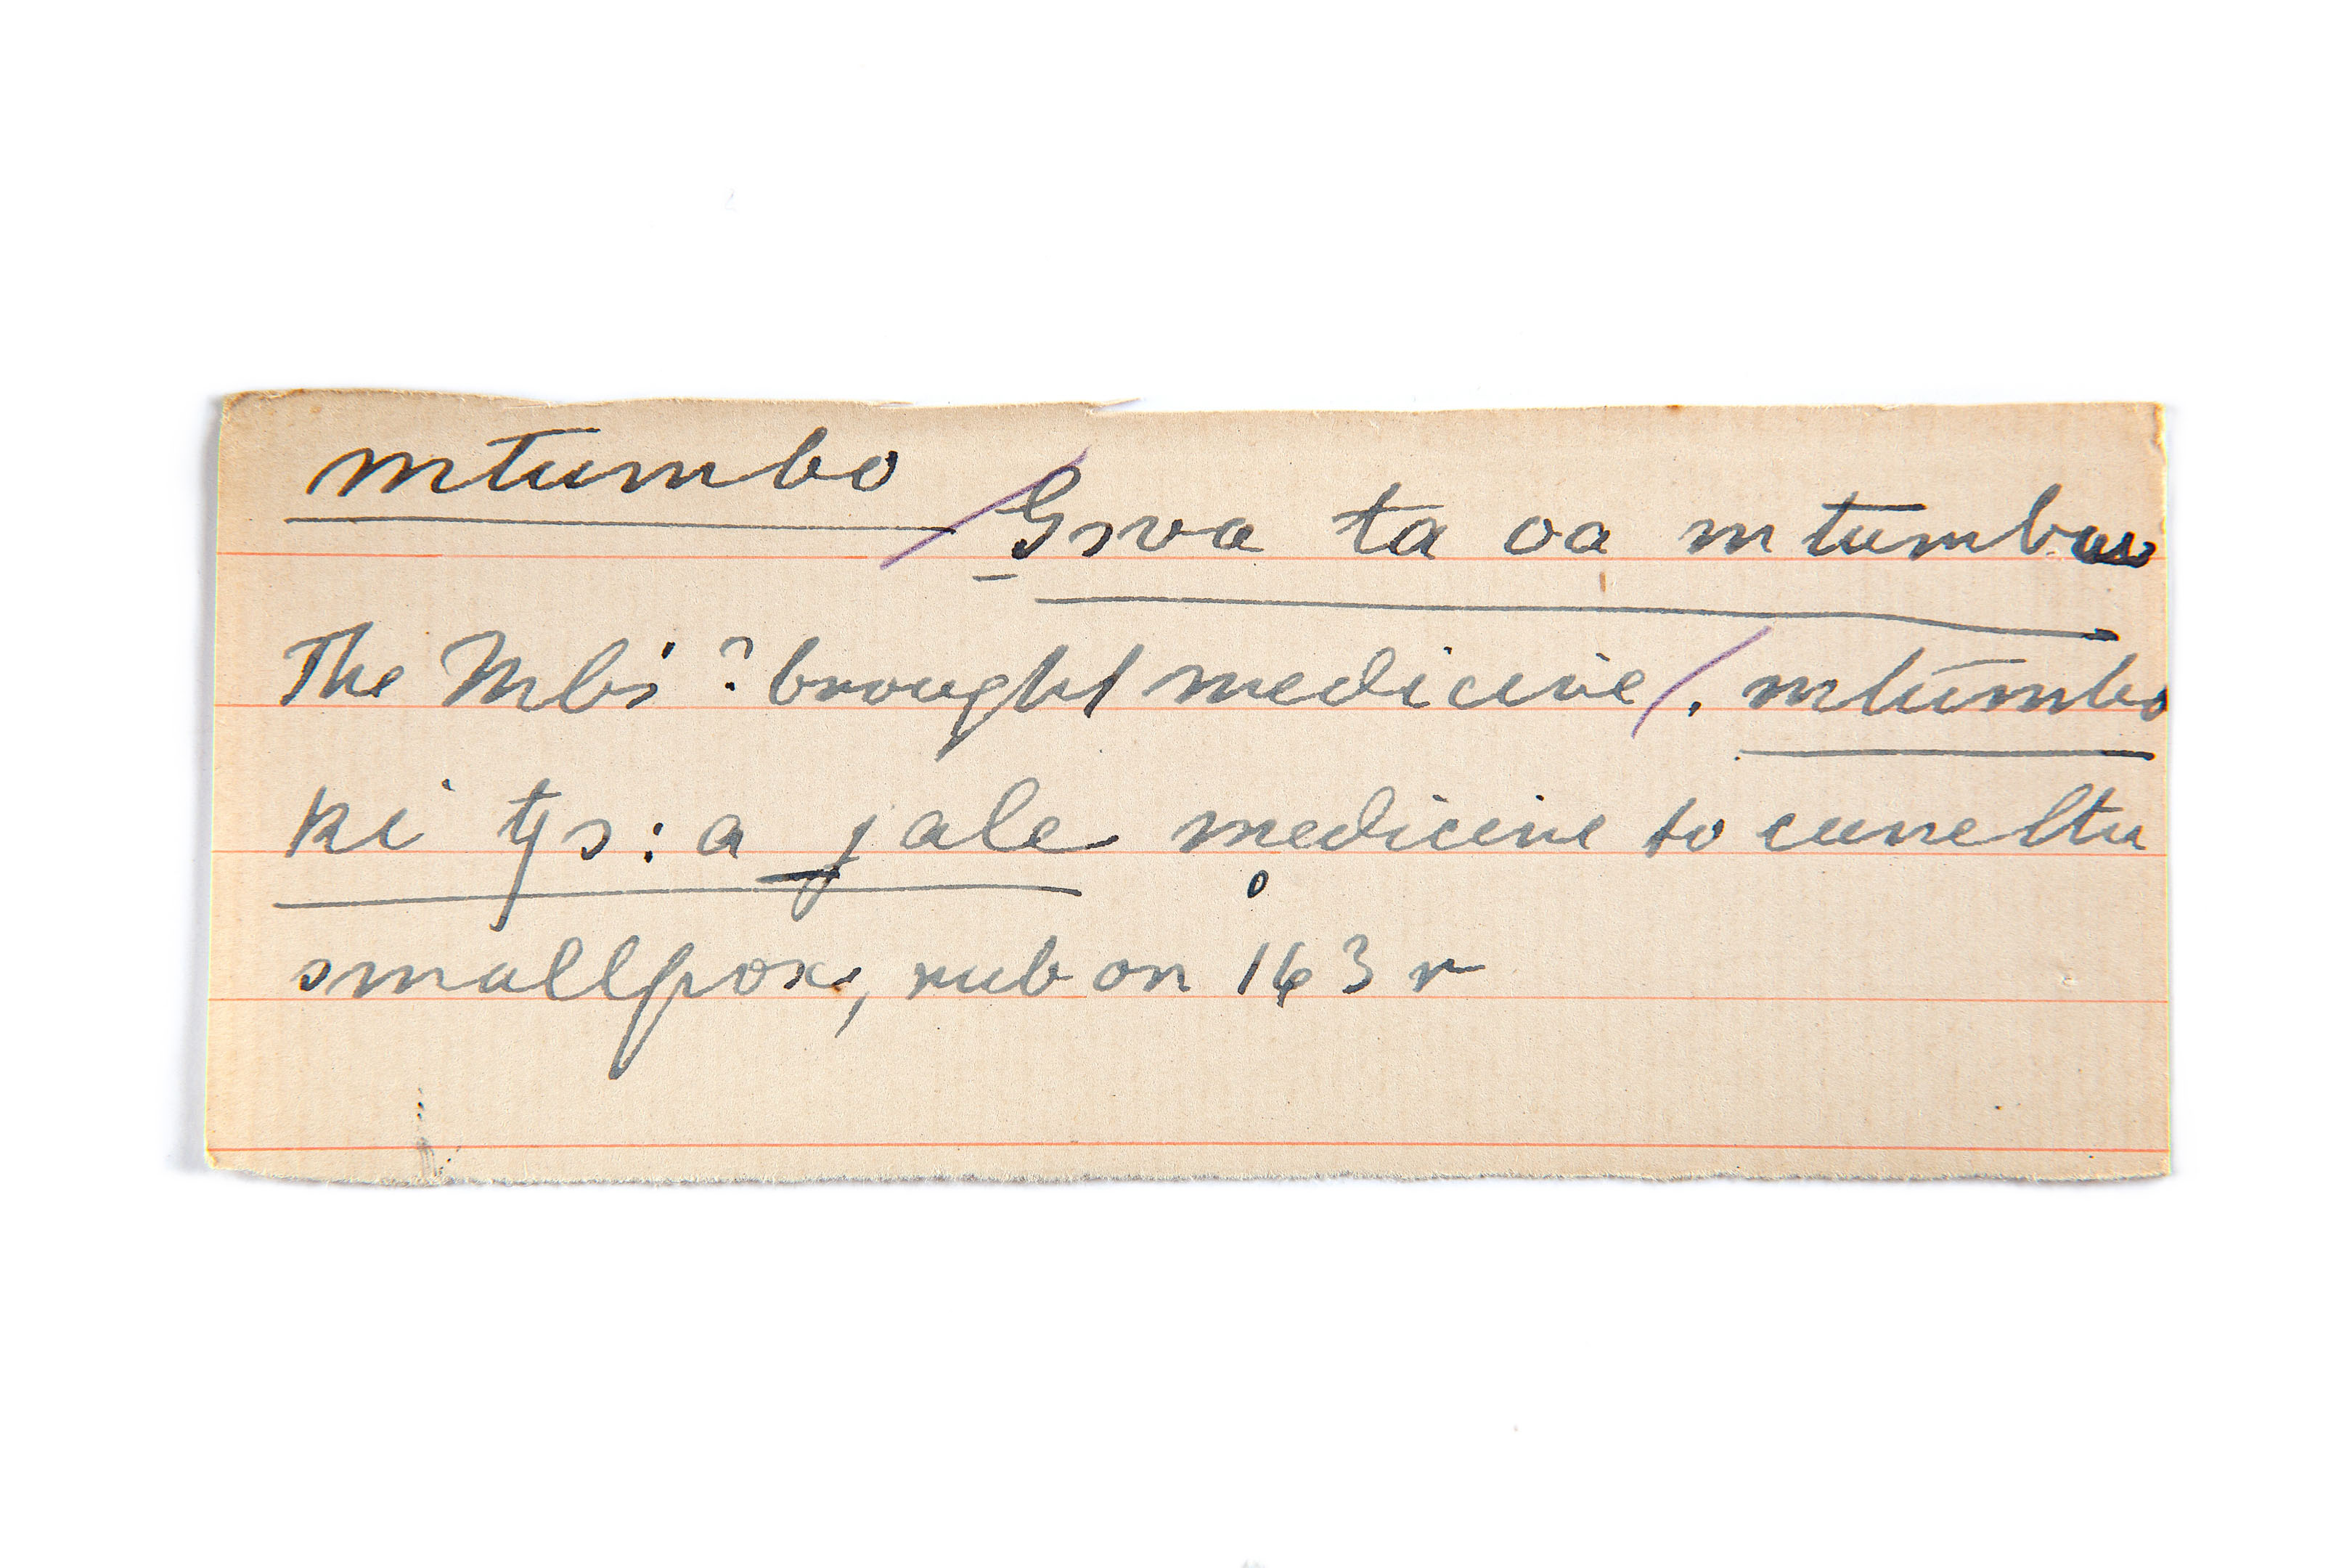 mtumbo
Gsva ta oa mtumbou
The Mbi ? brought medicine /. mtumbo
ki tys: a jale medicine to cure ltu
smallpox, rub on 163 r